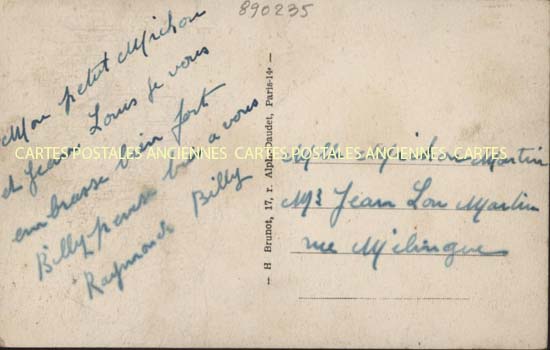 890235
Mon petit Michou
et Jean Louis je vous
embrasse bien fort
Billy pense bien a vous
Raymonde Billy
CARTES POSTALES ANCIENNES CARTES POSTALES ANCIENNES CARTES POSTALES ANCIENNES
H Brunot, 17, r. Alph. Daudet, Paris-14e
Martin
Mr Jean Lou Martin
rue Mélingue